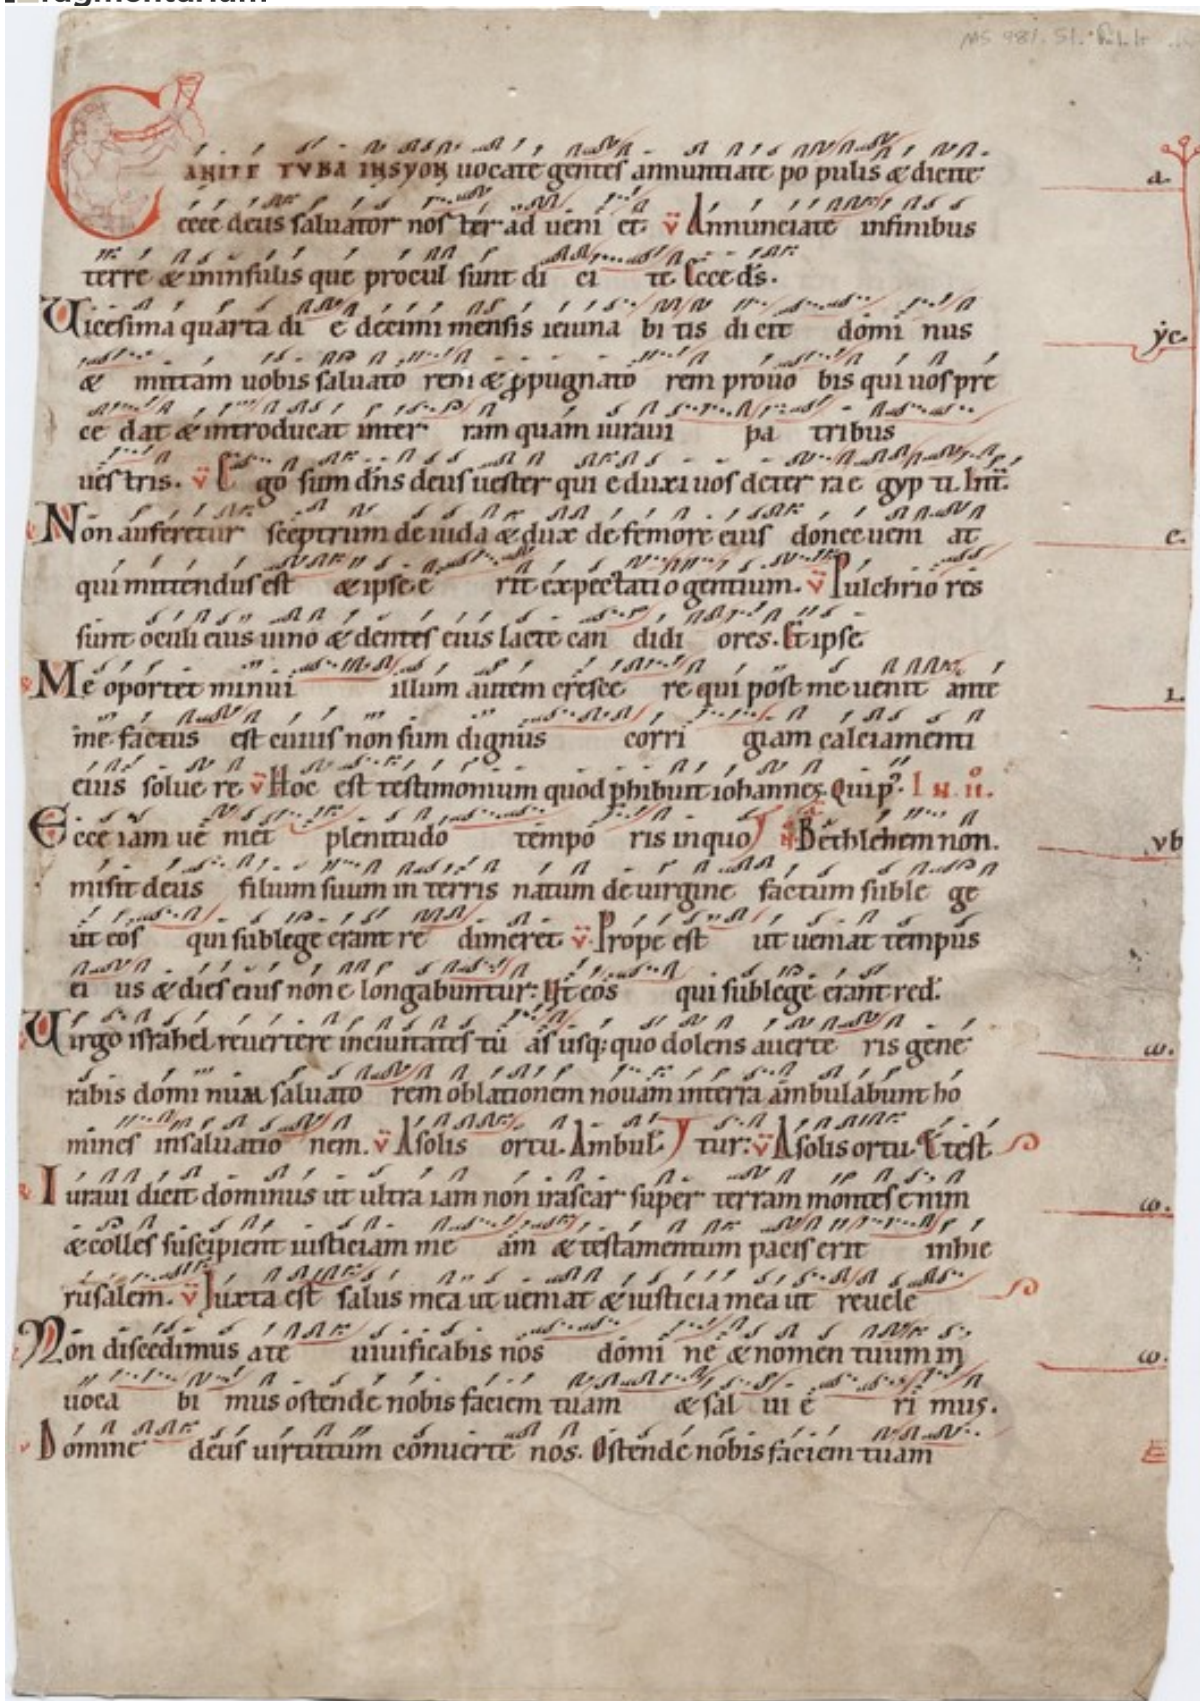 Fragmentarium
MS 981. 51.
CANITE TVBA INSYON uocate gentes annuntiate po pulis & dicite
ecce deus saluator nos ter ad ueni et. v Annunciate infinibus
terre & ininsulis que procul sunt di ci te Ecce ds.
Uicesima quarta di e decimi mensis ieiuna bi tis dicit domi nus
& mittam uobis saluato rem & ppugnato rem pro uo bis qui uos pre
ce dat & introducat inter ram quam iuraui pa tribus
ues tris. v E go sum dns deus uester qui eduxi uos deter ra e gyp ti.
Non auferetur sceptrum de iuda & dux de femore eius donec ueni at
qui mittendus est & ipse e rit expectati o gentium. v Pulchrio res
sunt oculi eius uino & dentes eius lacte can didi ores. Et ipse
Me oportet minui illum autem cresce re qui post me uenit ante
me factus est cuius non sum dignus corri giam calciamenti
eius solue re v Hoc est testimonium quod phibuit iohannes. Qui p. I N. II.
Ecce iam ue niet plenitudo tempo ris inquo Bethlehem non.
misit deus filium suum in terris natum de uirgine factum suble ge
ut eos qui sublege erant re dimeret v Prope est ut ueniat tempus
ei us & dies eius non e longabuntur: Ut eos qui sublege erant red.
Uirgo israhel reuertere inciuitates tu as usq; quo dolens auerte ris gene
rabis domi num saluato rem oblationem nouam interra ambulabunt ho
mines insaluatio nem. v A solis ortu. Ambul tur: v A solis ortu. & test
Iuraui dicit dominus ut ultra iam non irascar super terram montes enim
& colles suscipient iusticiam me am & testamentum pacis erit inhie
rusalem. v Iuxta est salus mea ut ueniat & iusticia mea ut reuele
Non discedimus ate uiuificabis nos domi ne & nomen tuum in
uoca bi mus ostende nobis faciem tuam & sal ui e ri mus.
v Domine deus uirtutum conuerte nos. Ostende nobis faciem tuam
a.
yc.
e.
i.
vb
ω.
ω.
ω.
E